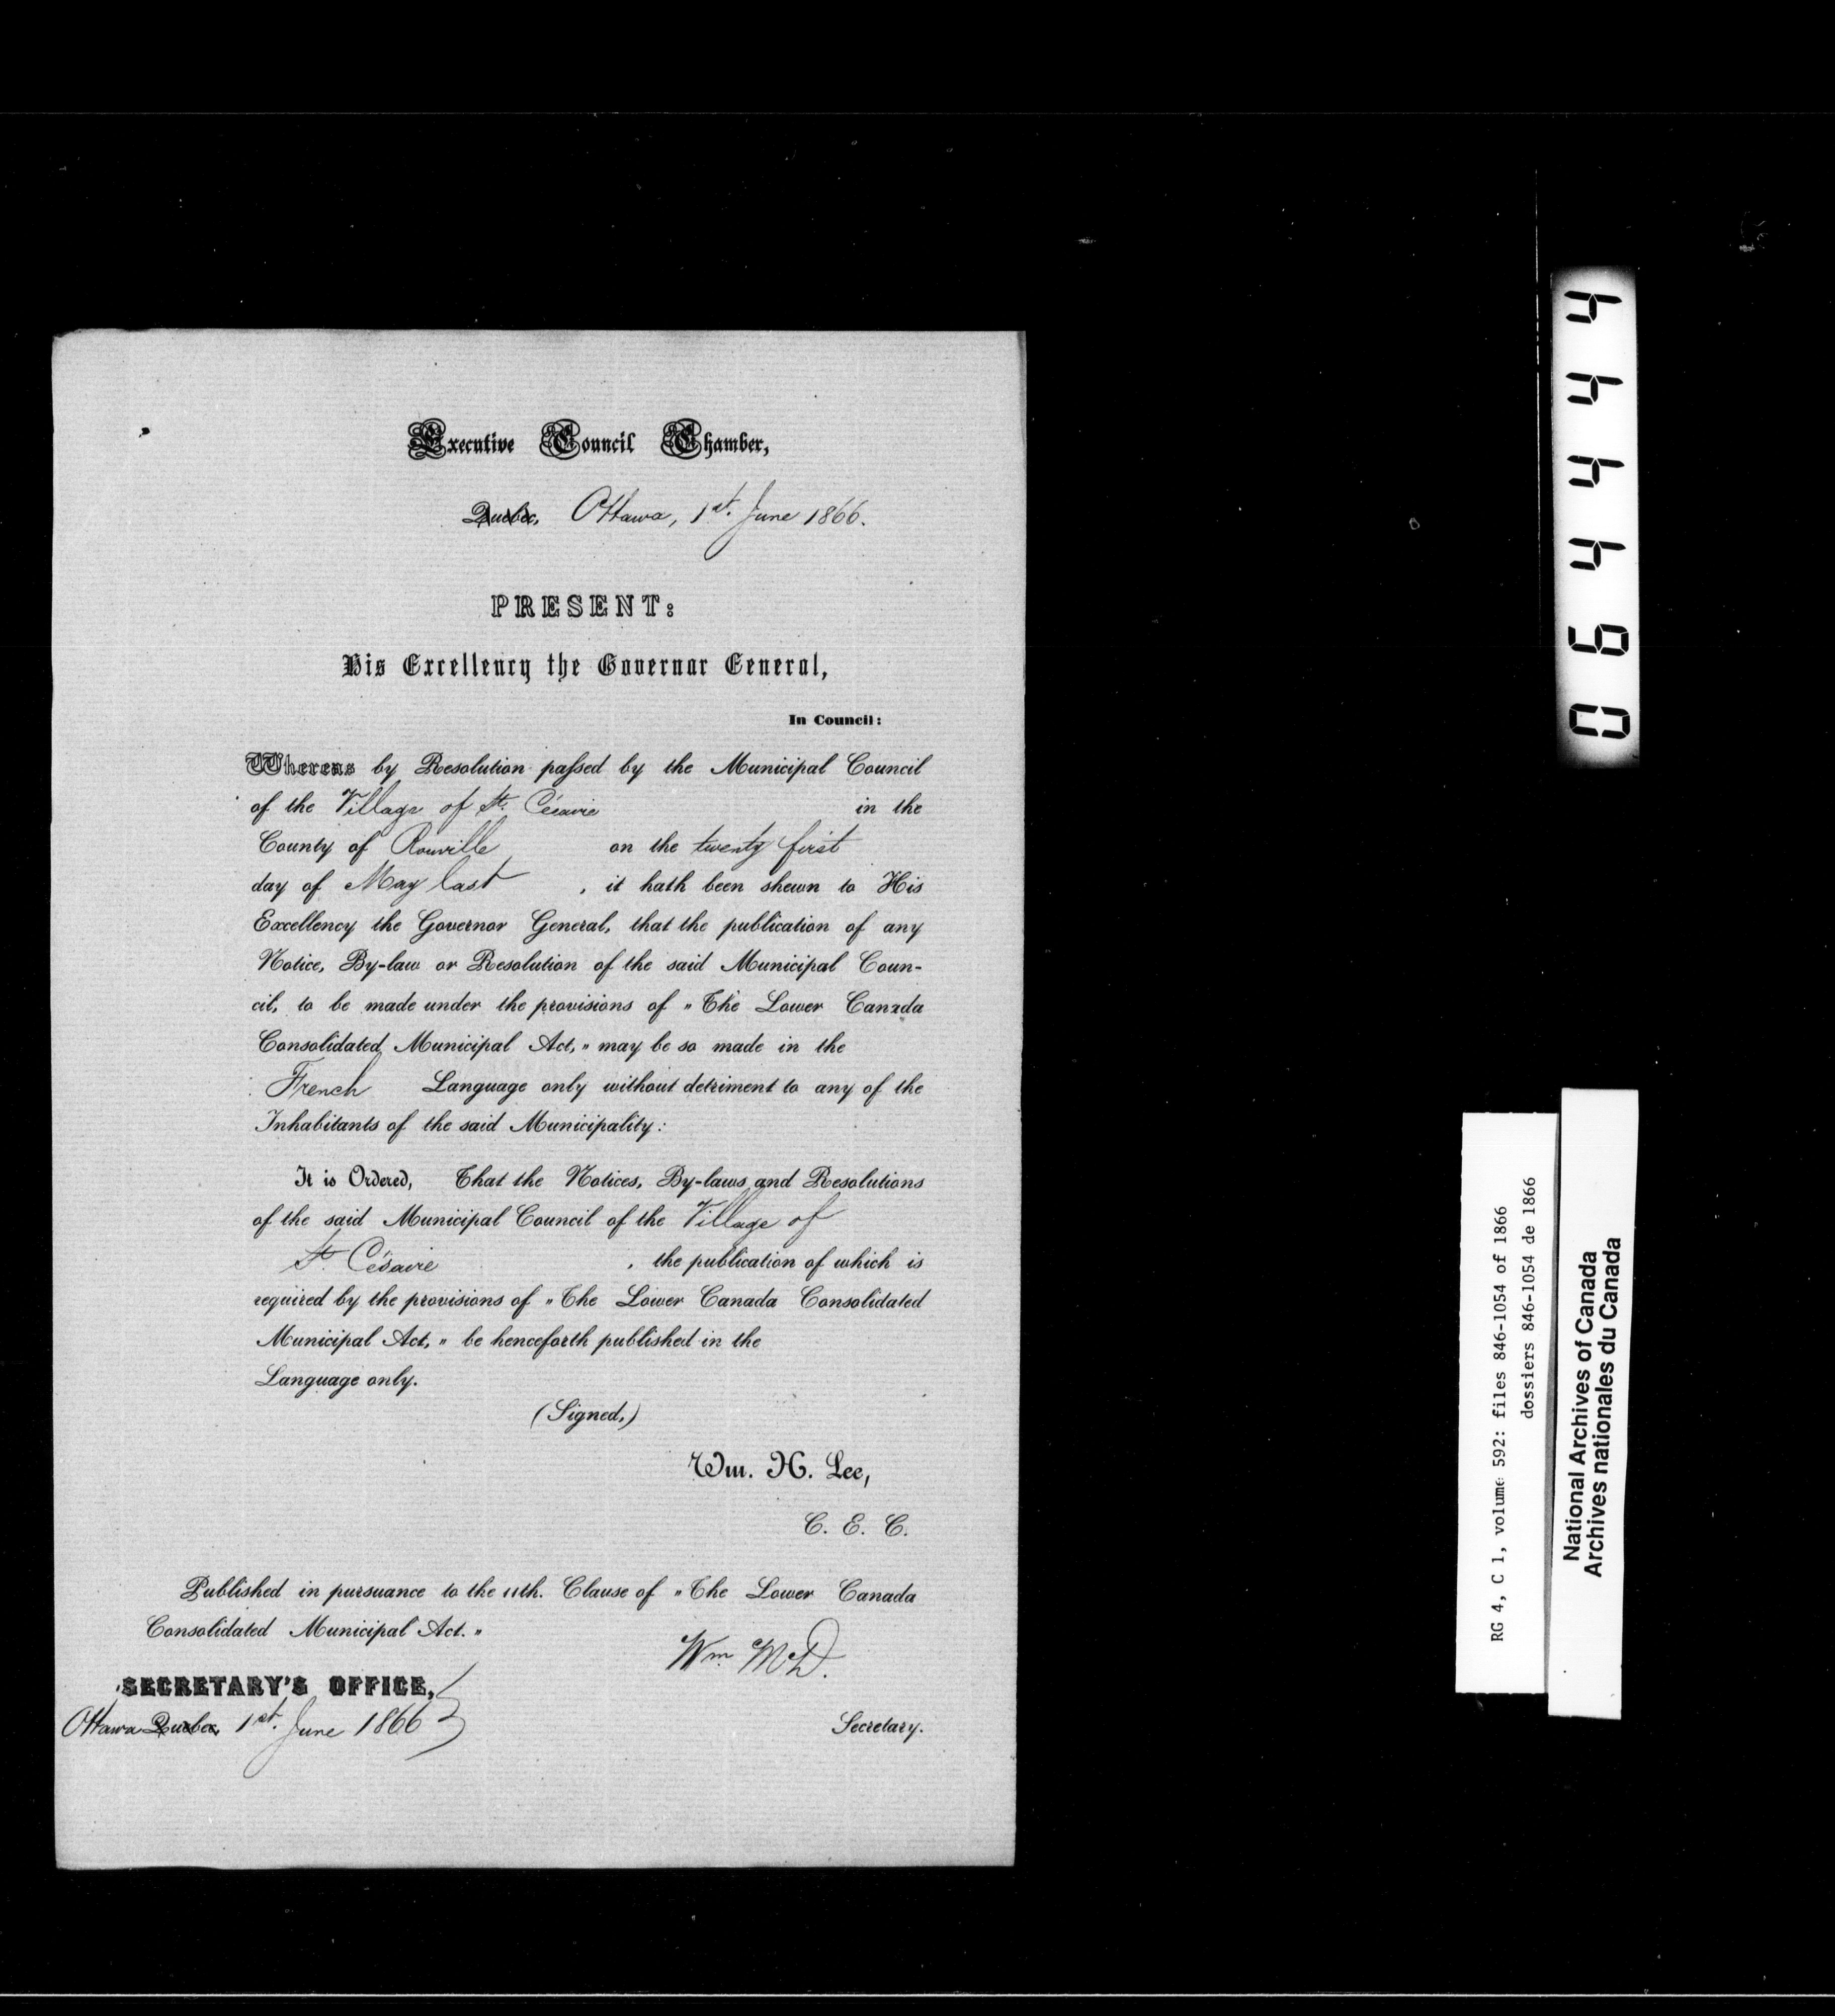 Executive Council Chamber,
Quebec, Ottawa, 1st. June 1866.
PRESENT:
His Excellency the Governor General,
In Council:
Whereas by Resolution passed by the Municipal Council
of the Village of St. Césaire in the
County of Rouville on the twenty first
day of May last , it hath been shewn to His
Excellency the Governor General, that the publication of any
Notice, By-law or Resolution of the said Municipal Coun-
cil, to be made under the provisions of "The Lower Canada
Consolidated Municipal Act," may be so made in the
French Language only without detriment to any of the
Inhabitants of the said Municipality:
It is Ordered, That the Notices, By-laws and Resolutions
of the said Municipal Council of the Village of
St. Césaire , the publication of which is
required by the provisions of "The Lower Canada Consolidated
Municipal Act," be henceforth published in the
Language only.
(Signed,)
Wm. H. Lee,
C. E. C.
Published in pursuance to the 11th. Clause of "The Lower Canada
Consolidated Municipal Act."
Wm McD.
SECRETARY'S OFFICE,
Ottawa Quebec, 1st. June 1866
Secretary.
064444
RG 4, C 1, volume 592: files 846-1054 of 1866
dossiers 846-1054 de 1866
National Archives of Canada
Archives nationales du Canada